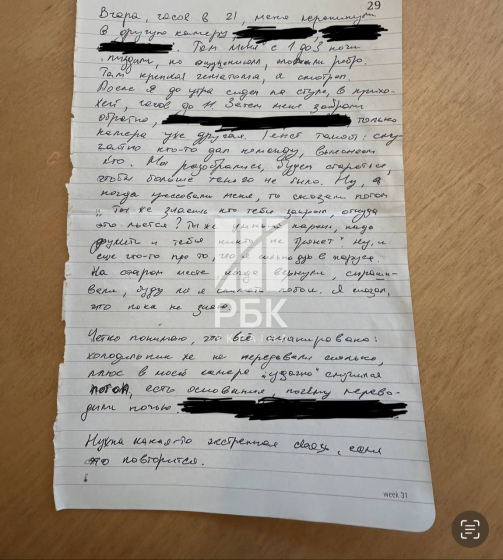 29
Вчера, часов в 21, меня перекинули
в другую камеру,
Там меня с 1 до 3 ночи
пиздили, по ощущениям, сломали ребро.
Там крупная гематома, я смотрел.
После я до утра сидел на стуле, в прихо-
жей, часов до 11. Затем меня забрали
обратно, только
камера уже другая. Текст такой:
кто-то дал команду, выясняем
кто. Мы разобрались, будем стараться,
чтобы больше такого не было. Ну, а
когда прессовали меня, то сказали потом
"ты же знаешь кто тебя закрыл, откуда
это льётся? Ты же умный парень, надо
дружить и тебя никто не тронет". Ну, и
еще что-то про то, что я
На старом месте, когда вернули, спраши-
вали, буду ли я писать потом. Я сказал,
что пока не знаю.
РБК
Четко понимаю, что всё спланировано:
холодильник же не передавали
плюс в моей камере "удачно" случился
потоп, есть основания, почему перево-
дили ночью
Нужна какая-то экстренная связь, если
это повторится.
week 31